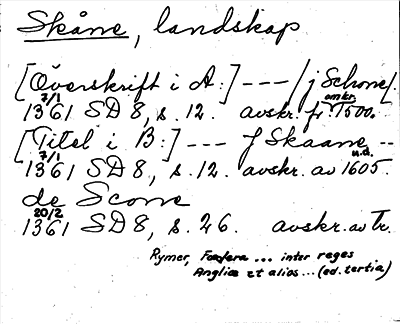 Skåne, landskap
[Överskrift i A:] --- / j Schone/.
7/1 omkr.
1361 SD 8, s. 12. avskr. fr. 1500.
[Titel i B:] --- J Skaane --
7/1 u.å.
1361 SD 8, s. 12. avskr. av 1605.
de Scone
20/2
1361 SD 8, s. 26. avskr. av Tr.
Rymer, Foedera ... inter reges
Angliæ et alios ... (ed. tertia)